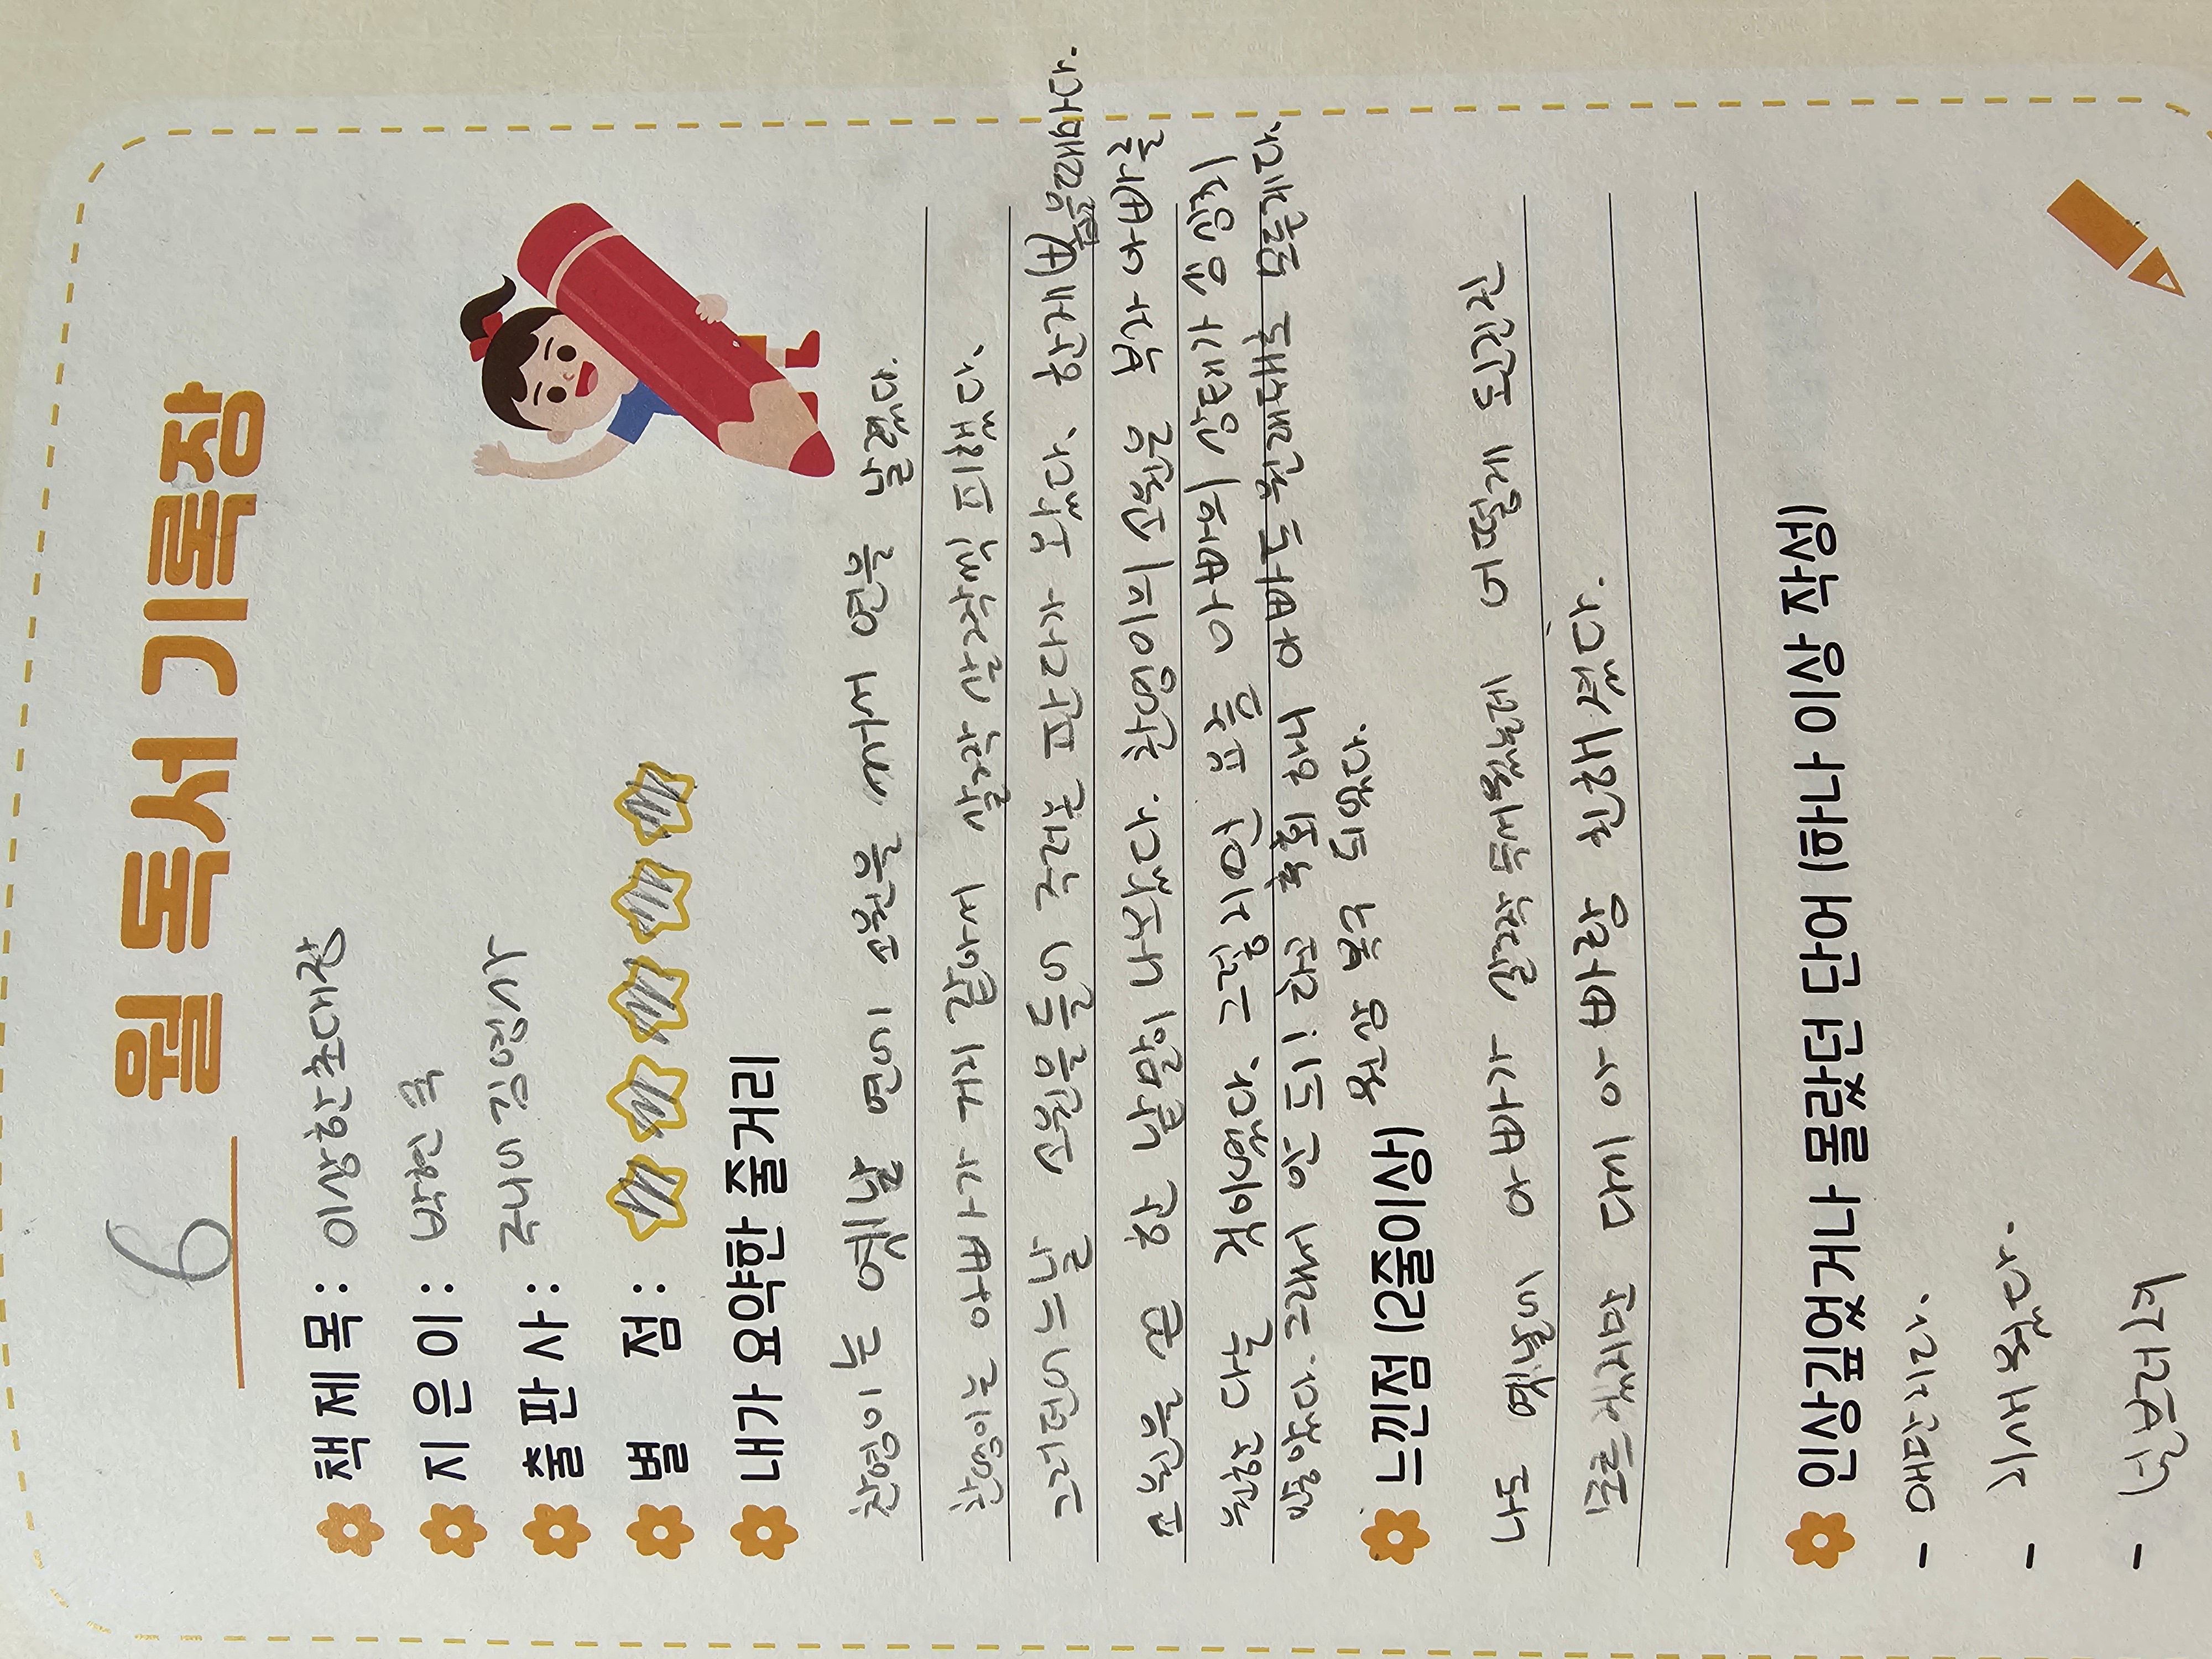 6 월 독서 기록장
책 제 목 : 이상한초대장
지 은 이 : 박현숙
출 판 사 : 주니어김영사
별 점 :
내가 요약한 줄거리
찬영이는 옛날 연에 소원을 써서 연을 날렸다.
찬영이는 아빠가 거지 같아서 살그락 살그작씩 피했다.
그러던어느날 소원을들어 주려는 판다가 왔다. 한계 을때마다.
소원을 쓴 한 낱말이 나왔다. 찬영이의 소원은 부자 아빠를
원한 다는 것이였다. 그렇지먼 요즘 아빠의 상태가 심상치
않았다. 그래서 안 되! 하고 후회 하니 아빠도 원래대로 모든게다.
원상 복구 되었다.
느낀점 (2줄이상)
나도 옛날에 아빠가 살그작 웠는데 어떻게 된긴진
모르겠지만 다시 아빠랑 친해졌다.
인상깊었거나 몰랐던 단어 (하나 이상 작성)
- 매단지다.
- 치새웠다.
- 널브러져